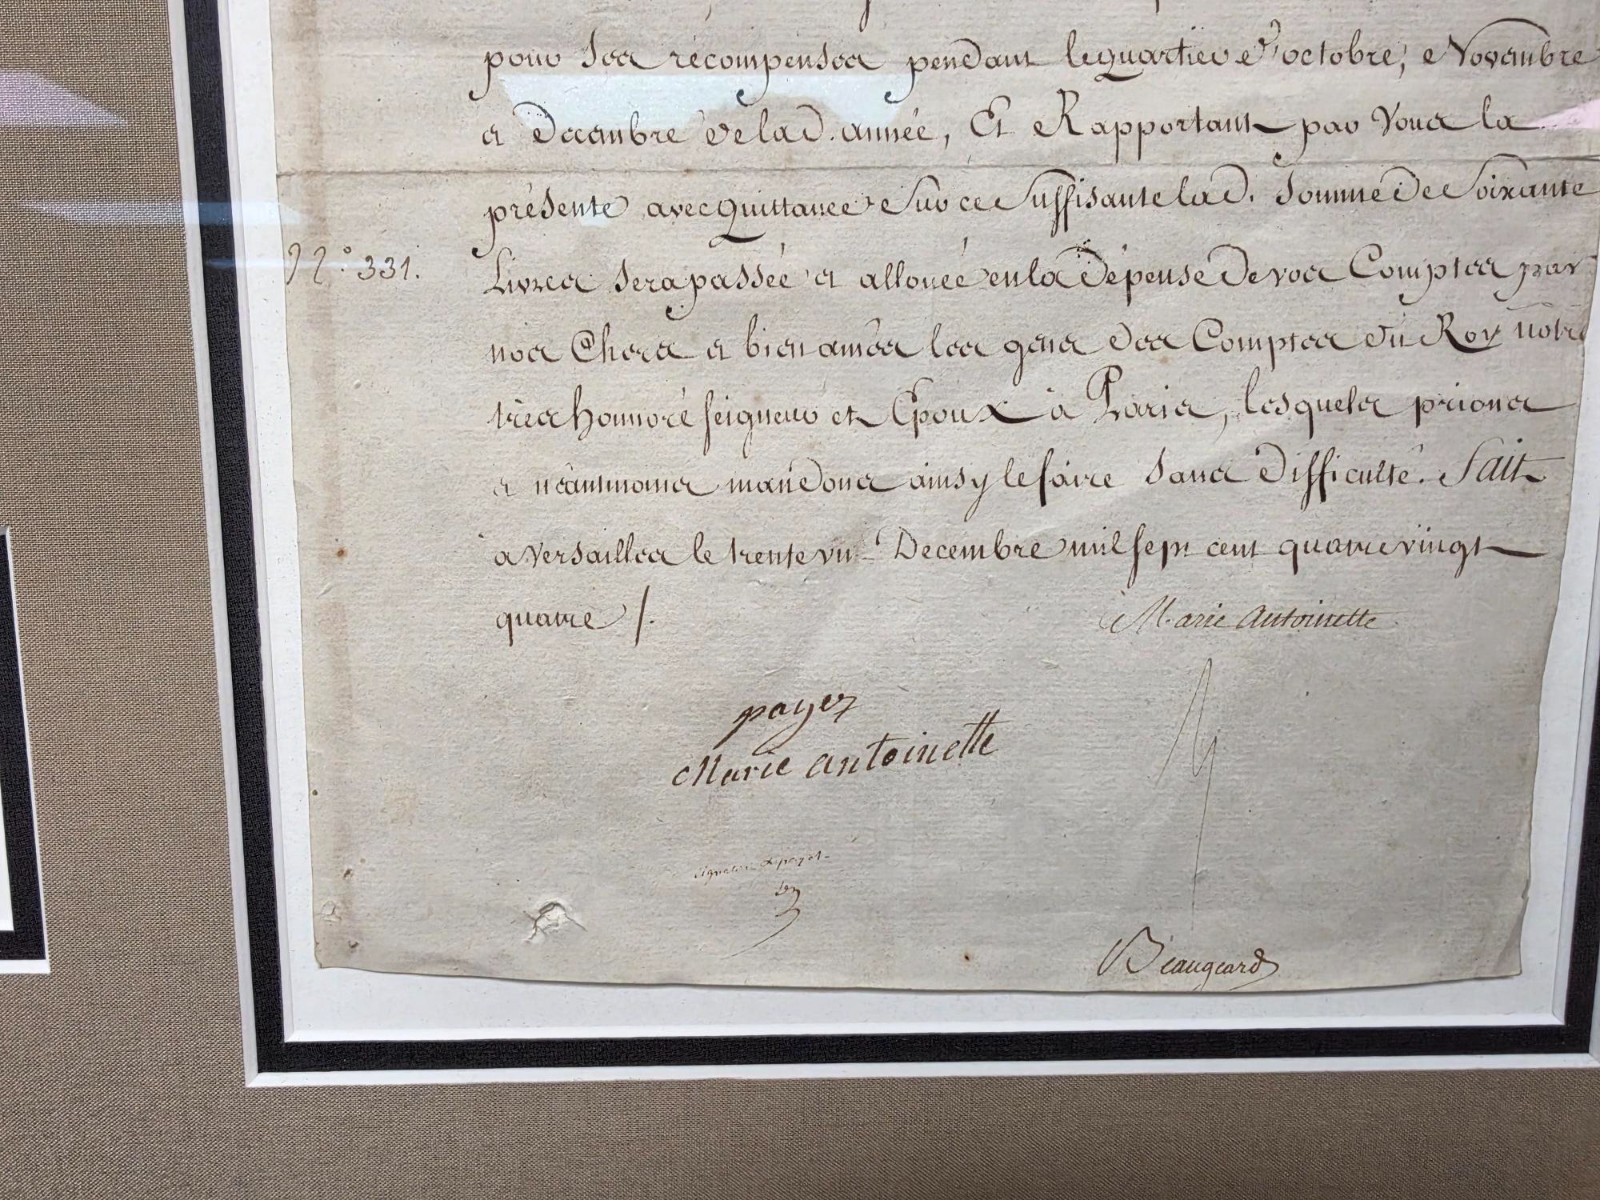 pour ses récompenses pendant le quartier d'octobre, Novembre
et Decembre de lad. année, Et Rapportant par Vous la
présente avec Quittance sur ce suffisante lad. somme de soixante
N.° 331.
Livres sera passée et allouée en la dépense de vos Comptes par
nos Chers et bien amés les gens des Comptes du Roy notre
très honnoré seigneur et Epoux à Paris, lesquels prions
et néantmoins mandons ainsy le faire sans difficulté. Fait
a Versailles le trente un.e Decembre mil sept cent quatre vingt
quatre /.
Marie Antoinette
payez
Marie Antoinette
Beaugeard